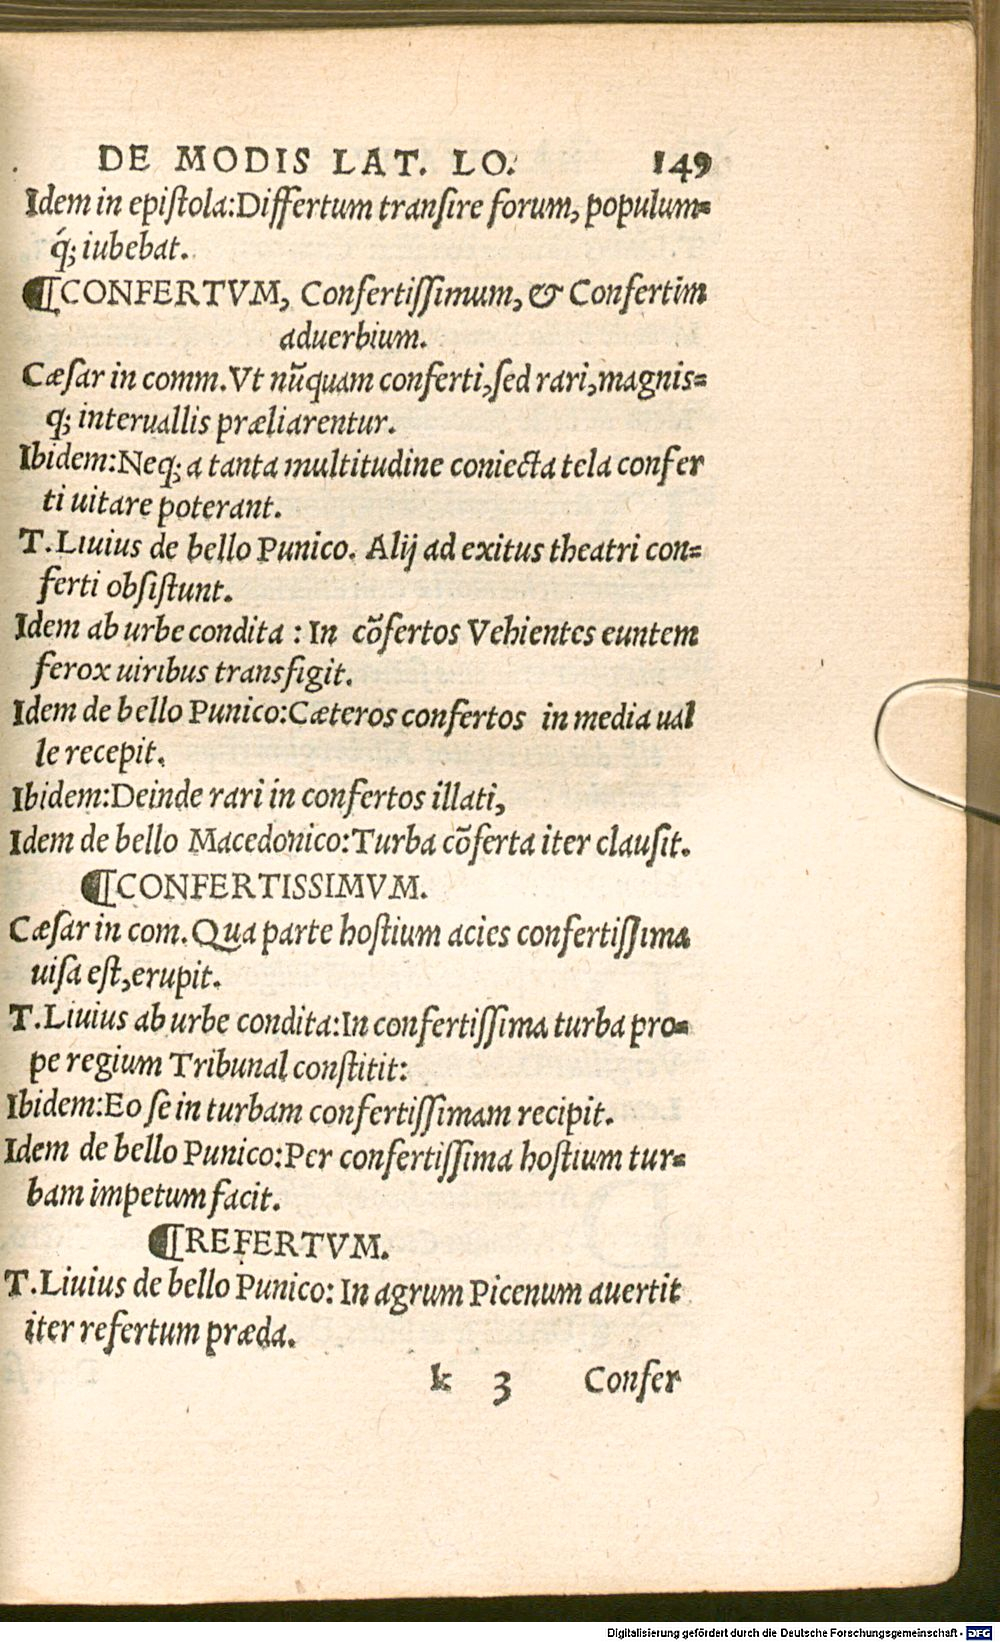 DE MODIS LAT. LO. 149
Idem in epiſtola:Differtum tranſire forum, populum=
q́; iubebat.
¶CONFERTVM, Confertiſſimum, & Confertim
aduerbium.
Cæſar in comm.Vt nūquam conferti,ſed rari,magnis=
q; interuallis præliarentur.
Ibidem:Neq; a tanta multitudine coniecta tela confer
ti uitare poterant.
T.Liuius de bello Punico. Alij ad exitus theatri con=
ferti obſiſtunt.
Idem ab urbe condita : In cōfertos Vehientes euntem
ferox uiribus transfigit.
Idem de bello Punico:Cæteros confertos in media ual
le recepit.
Ibidem:Deinde rari in confertos illati,
Idem de bello Macedonico:Turba cōferta iter clauſit.
¶CONFERTISSIMVM.
Cæſar in com.Qua parte hoſtium acies confertiſſima
uiſa eſt,erupit.
T.Liuius ab urbe condita:In confertiſſima turba pro=
pe regium Tribunal conſtitit:
Ibidem:Eo ſe in turbam confertiſſimam recipit.
Idem de bello Punico:Per confertiſſima hoſtium tur=
bam impetum facit.
¶REFERTVM.
T.Liuius de bello Punico: In agrum Picenum auertit
iter refertum præda.
k 3 Confer
Digitalisierung gefördert durch die Deutsche Forschungsgemeinschaft - DFG